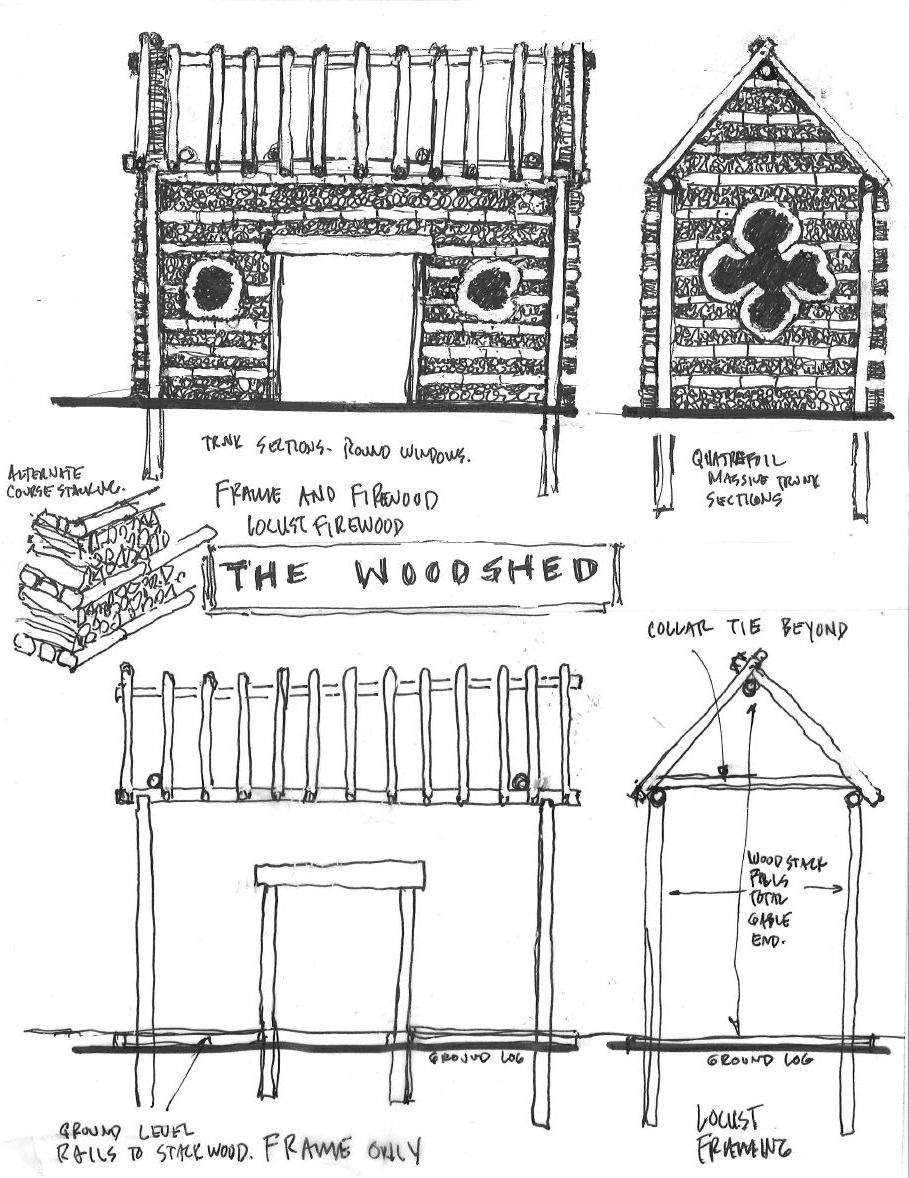 TRNK SECTIONS- ROUND WINDOWS.
QUATREFOIL
MASSIVE TRUNK
SECTIONS
ALTERNATE
COURSE STACKING.
FRAME AND FIREWOOD
LOCUST FIREWOOD
THE WOODSHED
COLLAR TIE BEYOND
WOOD STACK
FILLS
TOTAL
GABLE
END.
GROUND LOG
GROUND LOG
GROUND LEVEL
RAILS TO STACK WOOD. FRAME ONLY
LOCUST
FRAMING